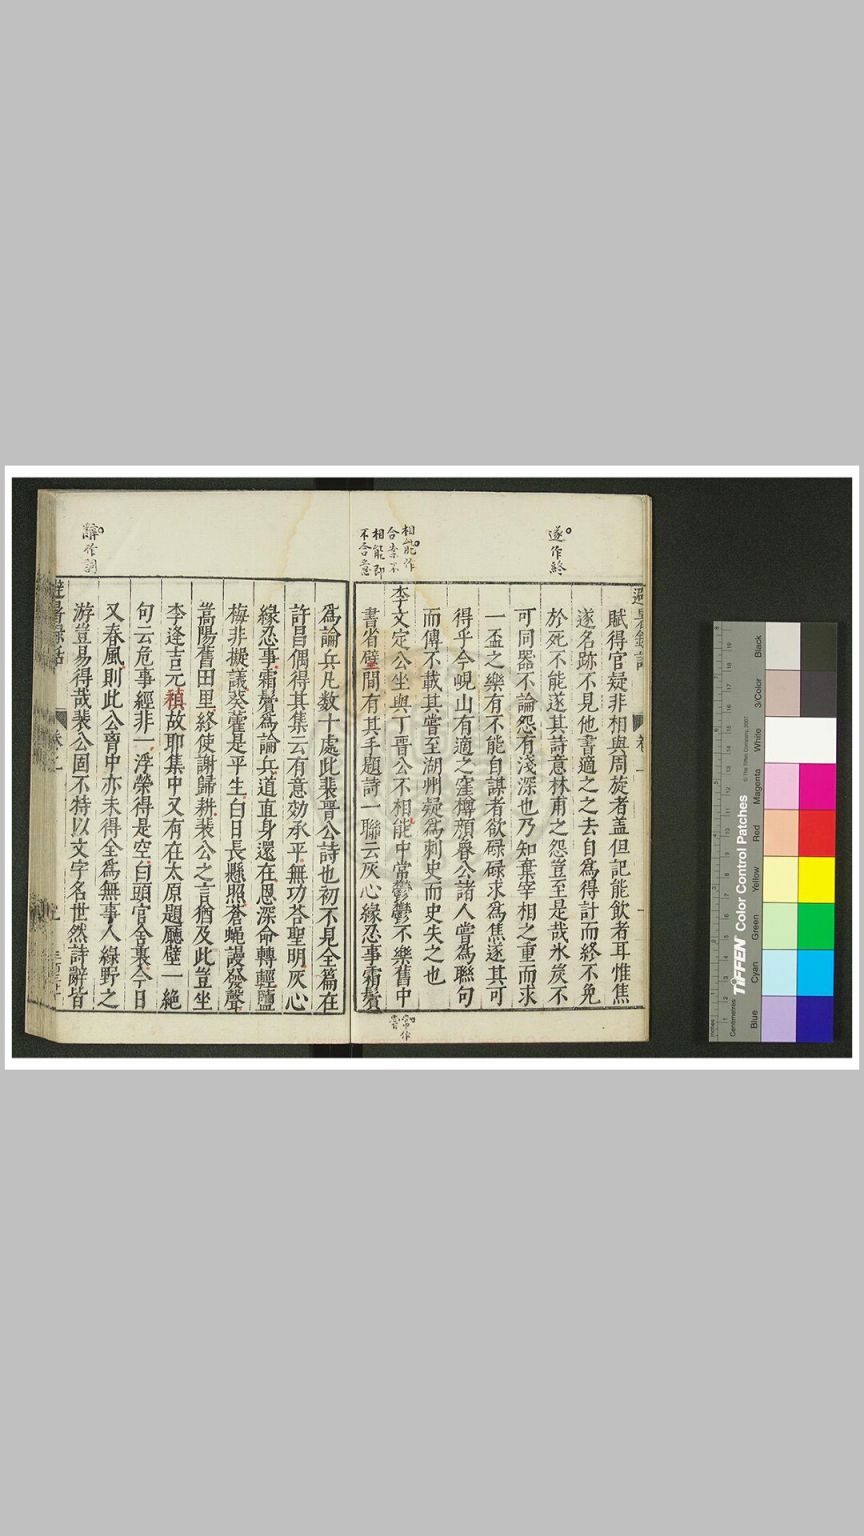 遂作終
賦得官疑非相與周旋者盖但記能飲者耳惟焦
遂名跡不見他書適之之去自為得計而終不免
於死不能遂其詩意林甫之怨豈至是哉氷炭不
可同器不論怨有淺深也乃知棄宰相之重而求
一盃之樂有不能自謀者欲碌碌求為焦遂其可
得乎今峴山有適之窪樽顔魯公諸人嘗為聯句
而傳不載其嘗至湖州疑為刺史而史失之也
相能作
合案不
相能即
不合意
李文定公坐與丁晋公不相能中常鬱鬱不樂舊中
常作
嘗
書省壁間有其手題詩一聯云灰心緣忍事霜鬢
為論兵凡数十處此裴晋公詩也初不見全篇在
許昌偶得其集云有意効承平無功荅聖明灰心
緣忍事霜鬢為論兵道直身還在恩深命轉輕鹽
梅非擬議葵藿是平生白日長懸照蒼蝿謾發聲
嵩陽舊田里終使謝歸耕裴公之言猶及此豈坐
李逢吉元稹故耶集中又有在太原題廳壁一絶
句云危事經非一浮榮得是空白頭官舍裏今日
又春風則此公胷中亦未得全為無事人緑野之
辭作詞
游豈易得哉裴公固不特以文字名世然詩辭皆
避暑録話
卷之
Black
3/Color
White
Magenta
Red
Yellow
Green
Cyan
Blue
TIFFEN Color Control Patches
© The Tiffen Company, 2007
Centimetres
Inches